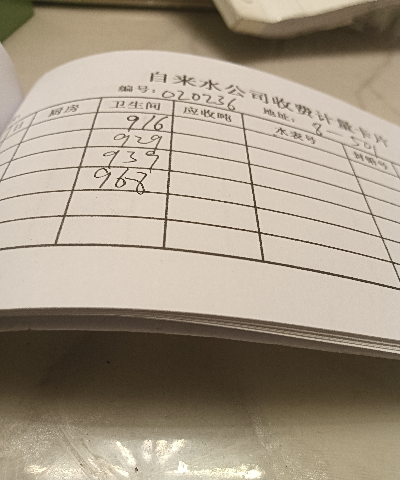 自来水公司收费计量卡片
编号：020236 地址：8-501
厨房 卫生间 应收吨 水表号
916
929
939
968